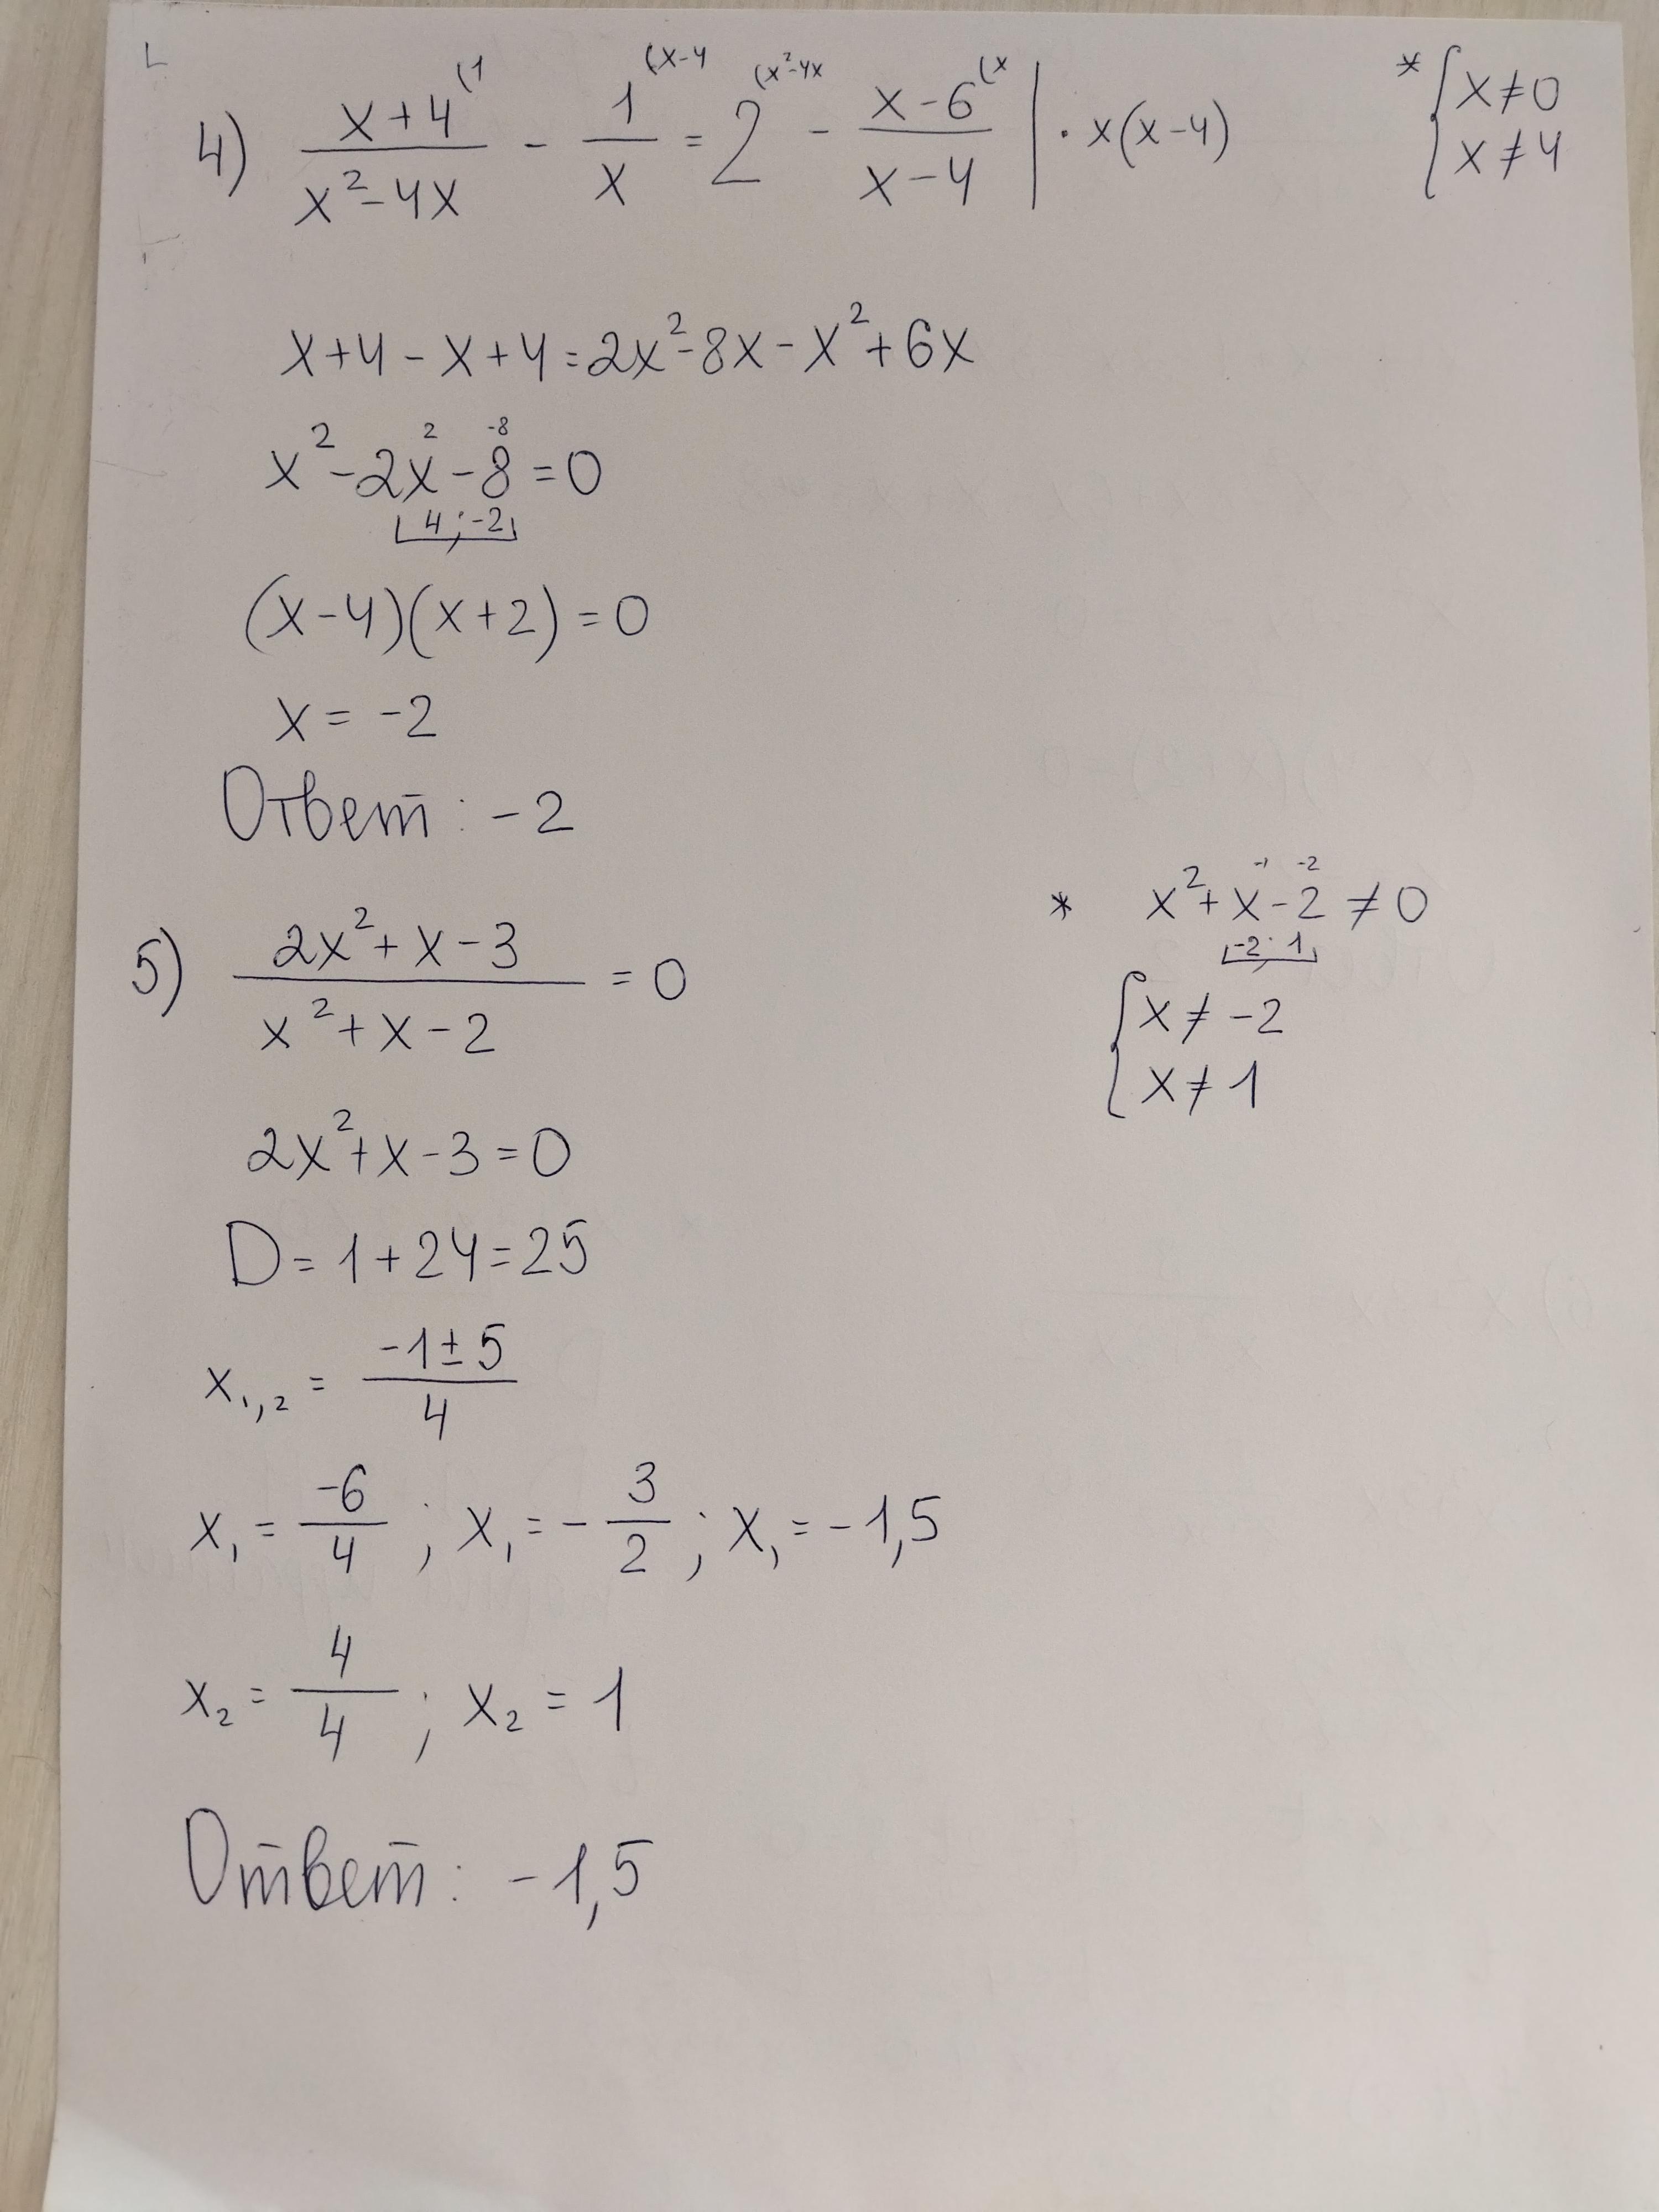 4) (x+4)/(x²-4x) ⁽¹ - 1/x ⁽ˣ⁻⁴ = 2 ⁽ˣ²⁻⁴ˣ - (x-6)/(x-4) ⁽ˣ | · x(x-4)
* { x≠0
x≠4
x+4-x+4=2x²-8x-x²+6x
2 -8
x²-2x-8=0
4; -2
(x-4)(x+2)=0
x= -2
Ответ: -2
5) (2x²+x-3)/(x²+x-2) = 0
-1 -2
* x²+x-2≠0
-2; 1
{ x≠-2
x≠1
2x²+x-3=0
D=1+24=25
x₁,₂ = (-1±5)/4
x₁ = -6/4 ; x₁ = -3/2 ; x₁ = -1,5
x₂ = 4/4 ; x₂ = 1
Ответ: -1,5